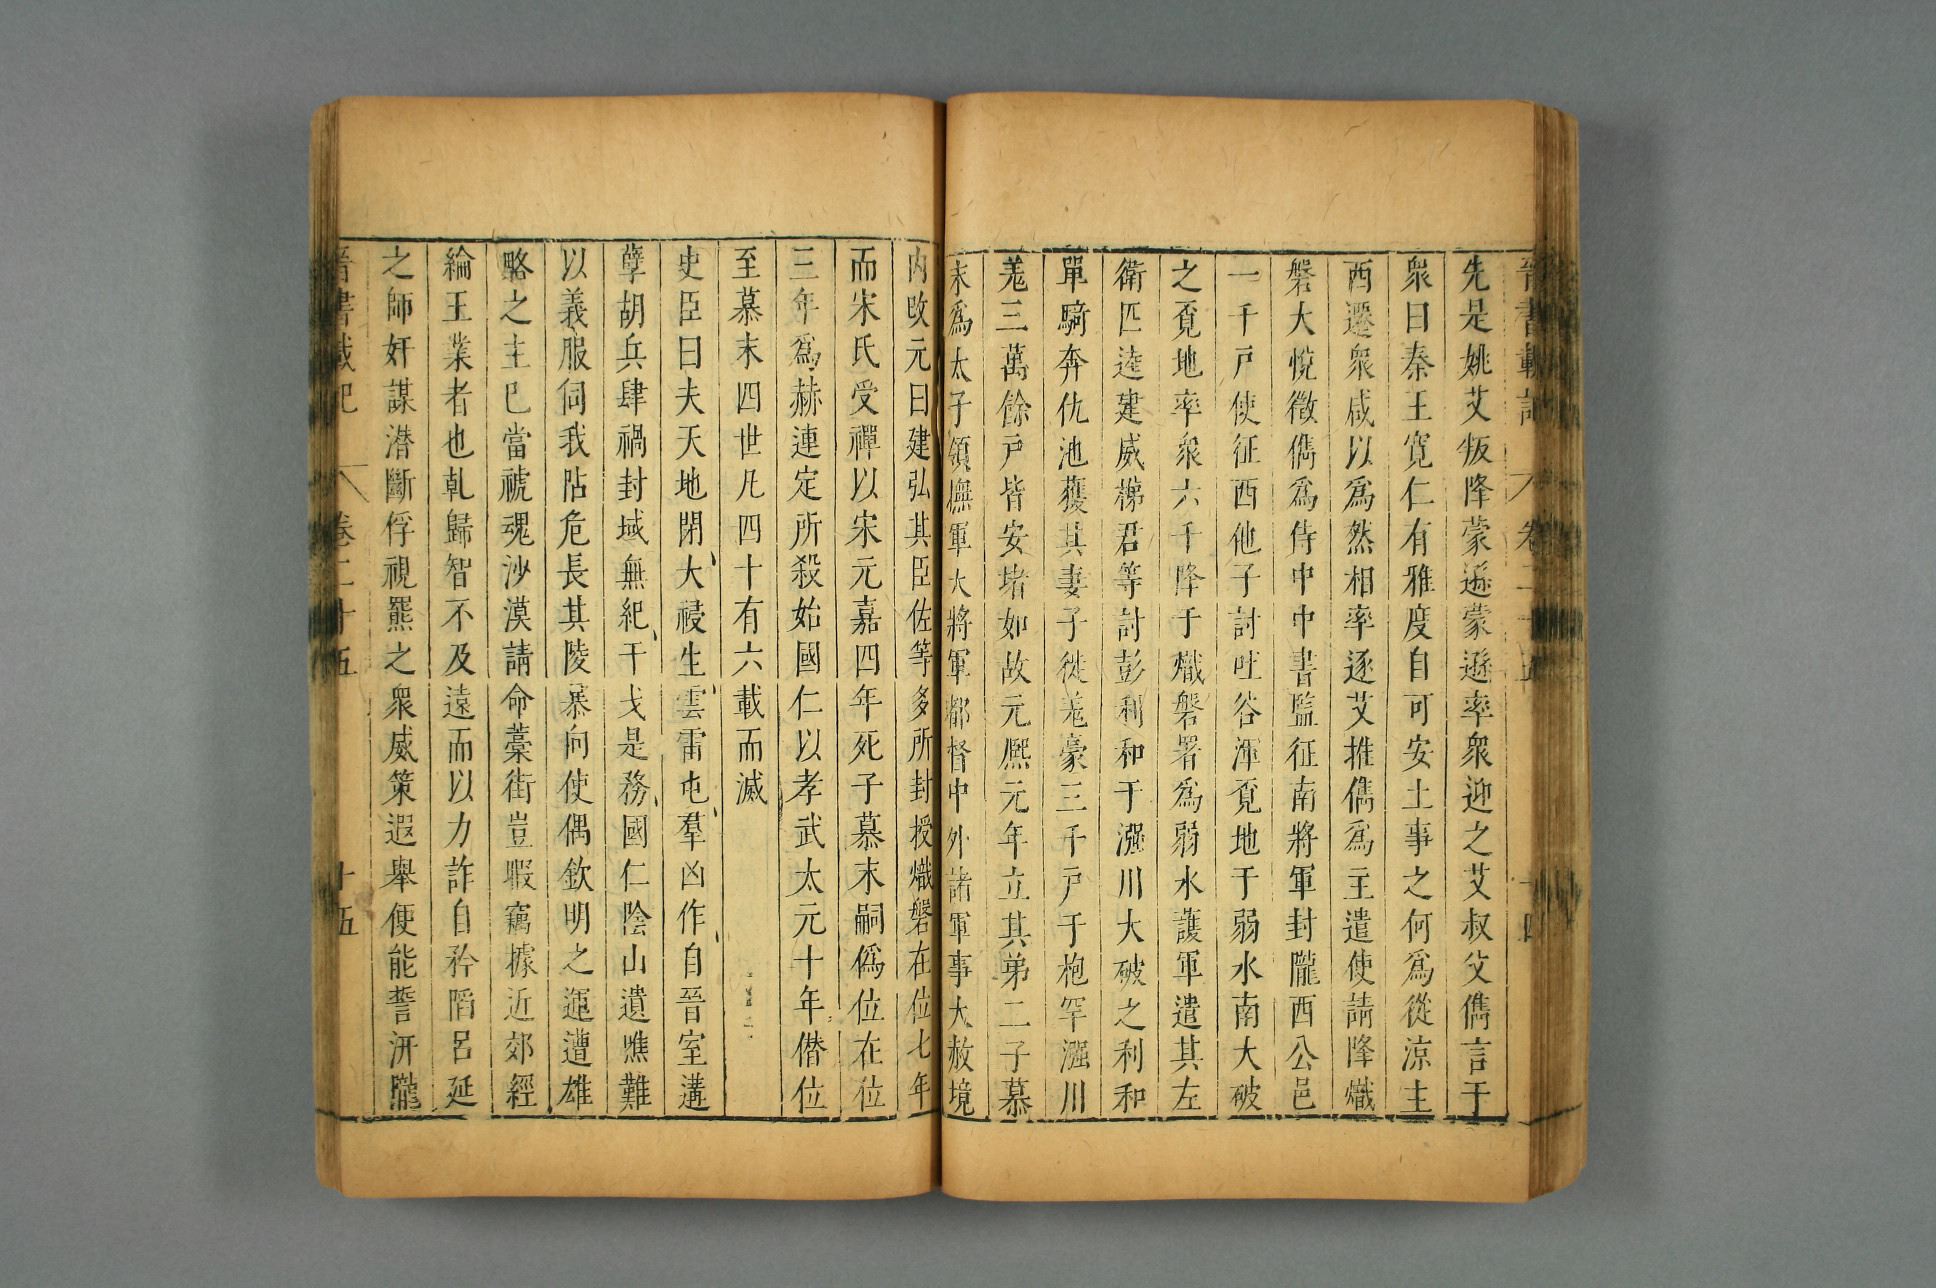 晉書載記 卷二十五 十四
先是姚艾叛降蒙遜蒙遜率衆迎之艾叔父儁言于
衆曰秦王寬仁有雅度自可安土事之何爲從涼主
西遷衆咸以爲然相率逐艾推儁爲主遣使請降熾
磐大悅徵儁爲侍中中書監征南將軍封隴西公邑
一千戸使征西他子討吐谷渾覓地于弱水南大破
之覓地率衆六千降于熾磐署爲弱水護軍遣其左
衛匹逵建威梯君等討彭利和于漒川大破之利和
單騎奔仇池獲其妻子徙羌豪三千戸于枹罕漒川
羌三萬餘戸皆安堵如故元熈元年立其弟二子慕
末爲太子領撫軍大將軍都督中外諸軍事大赦境
内改元曰建弘其臣佐等多所封授熾磐在位七年
而宋氏受禪以宋元嘉四年死子慕末嗣僞位在位
三年爲赫連定所殺始國仁以孝武太元十年僭位
至慕末四世凡四十有六載而滅
史臣曰夫天地閉大祲生雲雷屯羣凶作自晉室遘
孽胡兵肆禍封域無紀干戈是務國仁陰山遺噍難
以義服伺我阽危長其陵暴向使偶欽明之運遭雄
略之主已當褫魂沙漠請命藁街豈暇竊據近郊經
綸王業者也乹歸智不及遠而以力詐自矜䧟呂延
之師奸謀潛斷俘視羆之衆威策遐舉便能誓汧隴
晉書載記 卷二十五 十五